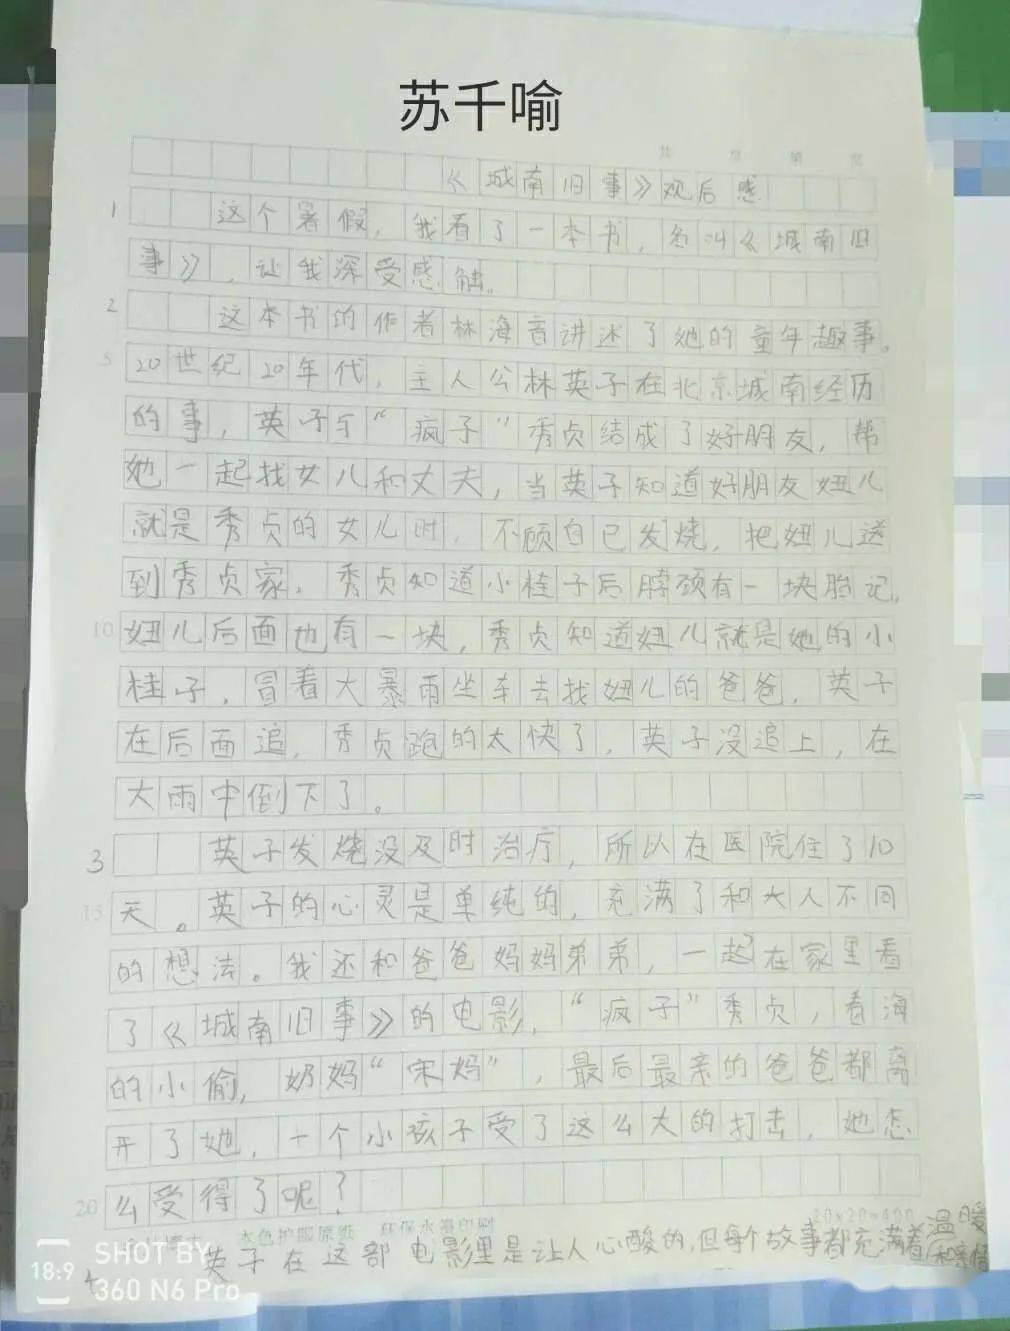 苏千喻
《城南旧事》观后感
1 这个暑假，我看了一本书，名叫《城南旧
事》，让我深受感触。
2 这本书的作者林海音讲述了她的童年趣事。
5 20世纪20年代，主人公林英子在北京城南经历
的事，英子与“疯子”秀贞结成了好朋友，帮
她一起找女儿和丈夫，当英子知道好朋友妞儿
就是秀贞的女儿时，不顾自己发烧，把妞儿送
到秀贞家，秀贞知道小桂子后脖颈有一块胎记，
10 妞儿后面也有一块，秀贞知道妞儿就是她的小
桂子，冒着大暴雨坐车去找妞儿的爸爸，英子
在后面追，秀贞跑的太快了，英子没追上，在
大雨中倒下了。
3 英子发烧没及时治疗，所以在医院住了10
15 天。英子的心灵是单纯的，充满了和大人不同
的想法。我还和爸爸妈妈弟弟，一起在家里看
了《城南旧事》的电影，“疯子”秀贞，看海
的小偷，奶妈“宋妈”，最后最亲的爸爸都离
开了她，一个小孩子受了这么大的打击，她怎
20 么受得了呢？
本色护眼原纸 环保水溶印刷
20×20=400
4 英子在这部电影里是让人心酸的，但每个故事都充满着温暖
SHOT BY
360 N6 Pro
18:9